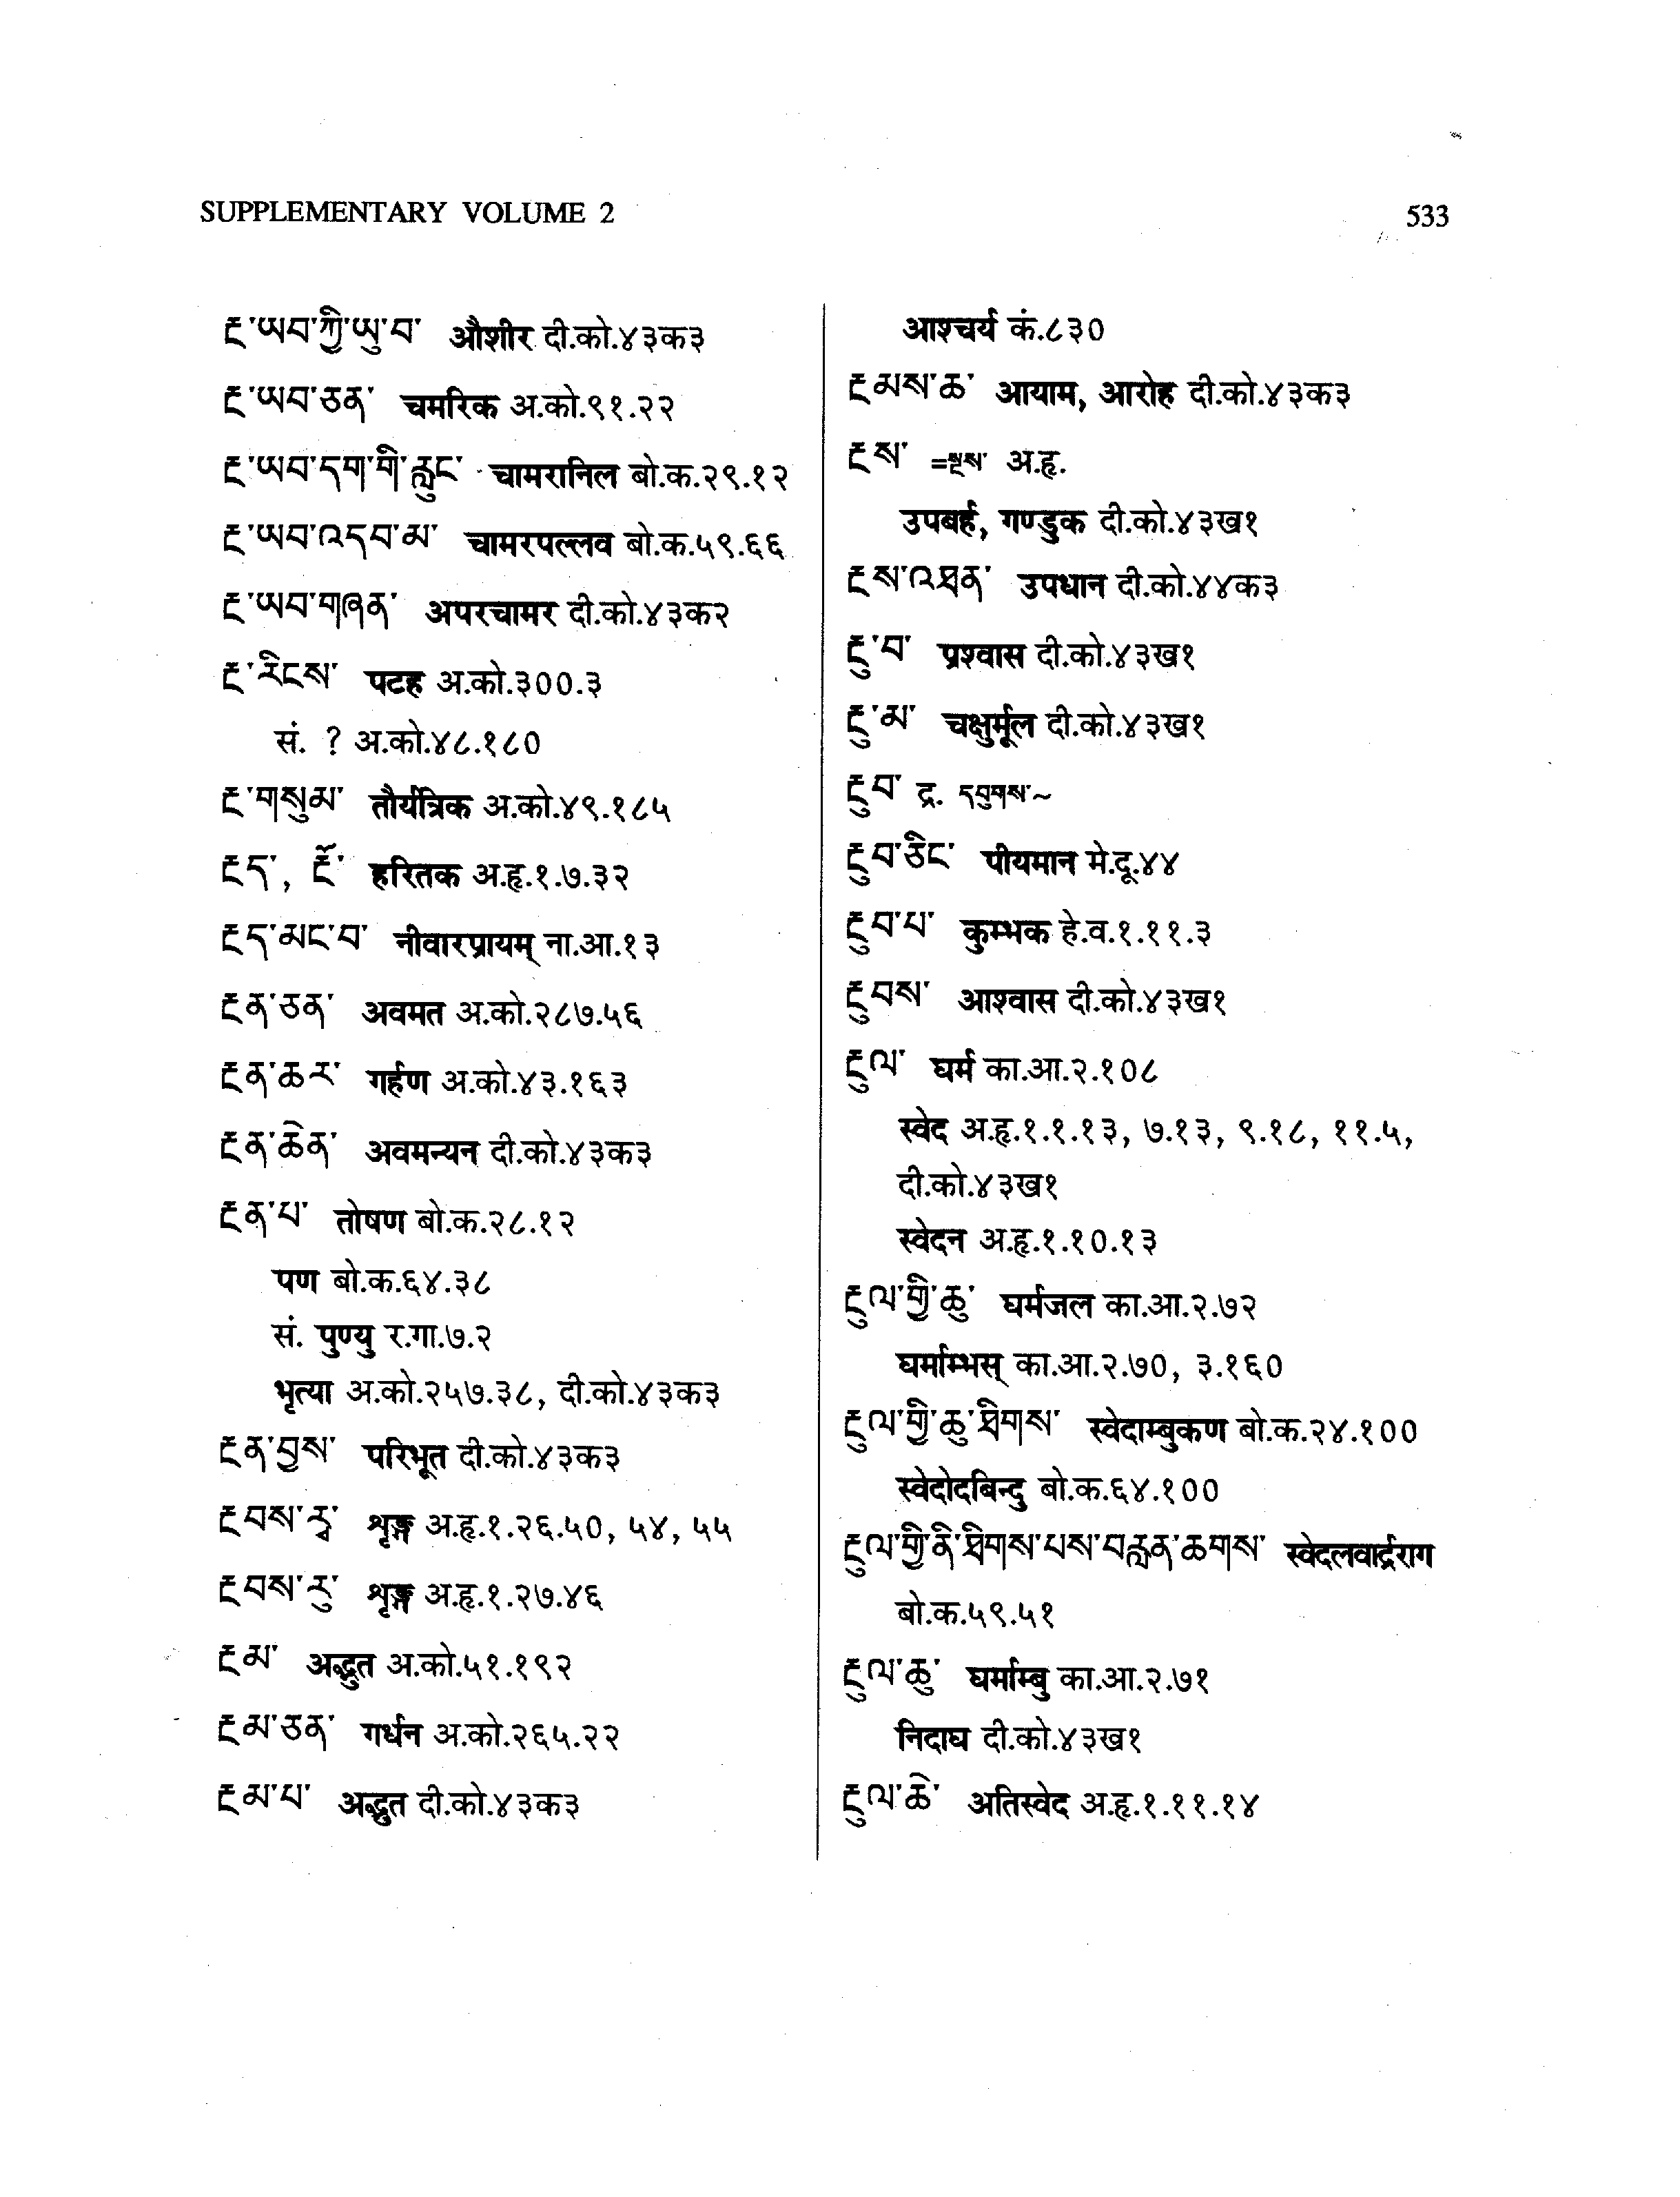 SUPPLEMENTARY VOLUME 2
533
རྔ་ཡབ་ཀྱི་ཡུ་བ་ औशीर दी.को.४३क३
རྔ་ཡབ་ཅན་ चमरिक अ.को.९१.२२
རྔ་ཡབ་དག་གི་རླུང་ चामरानिल बो.क.२९.१२
རྔ་ཡབ་འདབ་མ་ चामरपल्लव बो.क.५९.६६
རྔ་ཡབ་གཞན་ अपरचामर दी.को.४३क२
རྔ་རིངས་ पटह अ.को.३००.३
सं. ? अ.को.४८.१८०
རྔ་གསུམ་ तौर्यत्रिक अ.को.४९.१८५
རྔད་, རྔོ་ हरितक अ.हृ.१.७.३२
རྔད་མང་བ་ नीवारप्रायम् ना.आ.१३
རྔན་ཅན་ अवमत अ.को.२८७.५६
རྔན་ཆར་ गर्हण अ.को.४३.१६३
རྔན་ཆེན་ अवमन्यन दी.को.४३क३
རྔན་པ་ तोषण बो.क.२८.१२
पण बो.क.६४.३८
सं. पुण्यु र.गा.७.२
भृत्या अ.को.२५७.३८, दी.को.४३क३
རྔན་བྱས་ परिभूत दी.को.४३क३
རྔབས་རྭ་ शृङ्ग अ.हृ.१.२६.५०, ५४, ५५
རྔབས་རུ་ शृङ्ग अ.हृ.१.२७.४६
རྔམ་ अद्भुत अ.को.५१.१९२
རྔམ་ཅན་ गर्धन अ.को.२६५.२२
རྔམ་པ་ अद्भुत दी.को.४३क३
आश्चर्य कं.८३०
རྔམས་ཆ་ आयाम, आरोह दी.को.४३क३
རྔས་ =སྔས་ अ.हृ.
उपबर्ह, गण्डुक दी.को.४३ख१
རྔས་འཐན་ उपधान दी.को.४४क३
རྔུ་བ་ प्रश्वास दी.को.४३ख१
རྔུ་མ་ चक्षुर्मूल दी.को.४३ख१
རྔུབ་ द्र. དབུགས་~
རྔུབ་ཅིང་ पीयमान मे.दू.४४
རྔུབ་པ་ कुम्भक हे.व.१.११.३
རྔུབས་ आश्वास दी.को.४३ख१
རྔུལ་ घर्म का.आ.२.१०८
स्वेद अ.हृ.१.१.१३, ७.१३, ९.१८, ११.५,
दी.को.४३ख१
स्वेदन अ.हृ.१.१०.१३
རྔུལ་གྱི་ཆུ་ घर्मजल का.आ.२.७२
घर्माम्भस् का.आ.२.७०, ३.१६०
རྔུལ་གྱི་ཆུ་ཐིགས་ स्वेदाम्बुकण बो.क.२४.१००
स्वेदोदबिन्दु बो.क.६४.१००
རྔུལ་གྱི་ནི་ཐིགས་པས་བརླན་ཆགས་ स्वेदलवार्द्रराग
बो.क.५९.५१
རྔུལ་ཆུ་ घर्माम्बु का.आ.२.७१
निदाघ दी.को.४३ख१
རྔུལ་ཆེ་ अतिस्वेद अ.हृ.१.११.१४